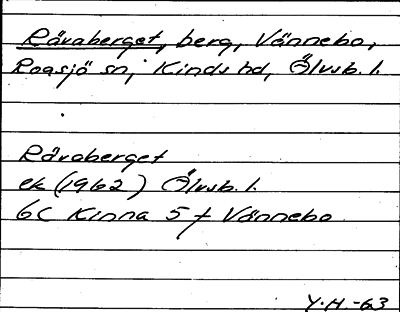 Råvaberget, berg, Vännebo,
Roasjö sn, Kinds hd, Älvsb. l.
Råvaberget
ek (1962) Älvsb. l.
6C Kinna 5 f Vännebo
Y.H.-63